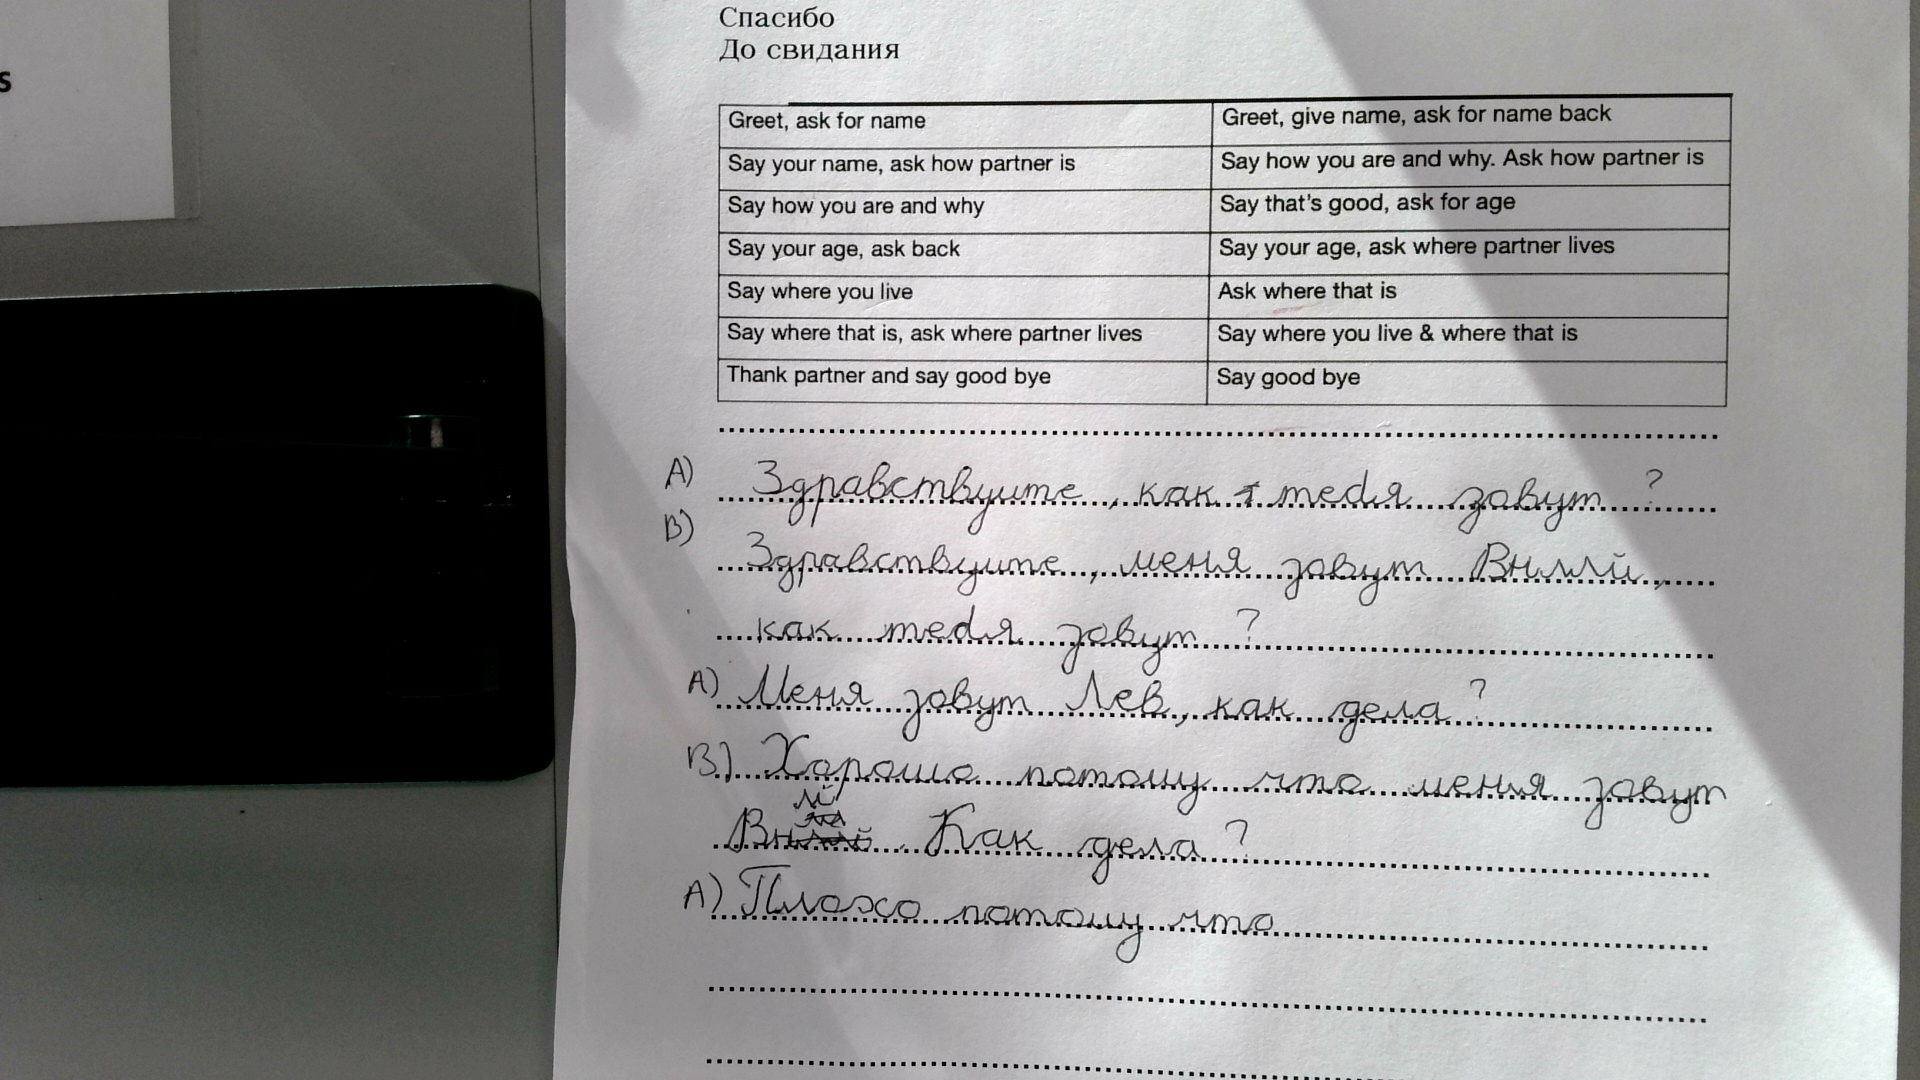 s
Спасибо
До свидания
Greet, ask for name
Greet, give name, ask for name back
Say your name, ask how partner is
Say how you are and why. Ask how partner is
Say how you are and why
Say that's good, ask for age
Say your age, ask back
Say your age, ask where partner lives
Say where you live
Ask where that is
Say where that is, ask where partner lives
Say where you live & where that is
Thank partner and say good bye
Say good bye
A) Здравствуите, как тебя зовут ?
B) Здравствуите, меня зовут
как тебя зовут ?
A) Меня зовут Лев, как дела ?
B) Хорошо потому что меня зовут
Как дела ?
A) Плохо потому что